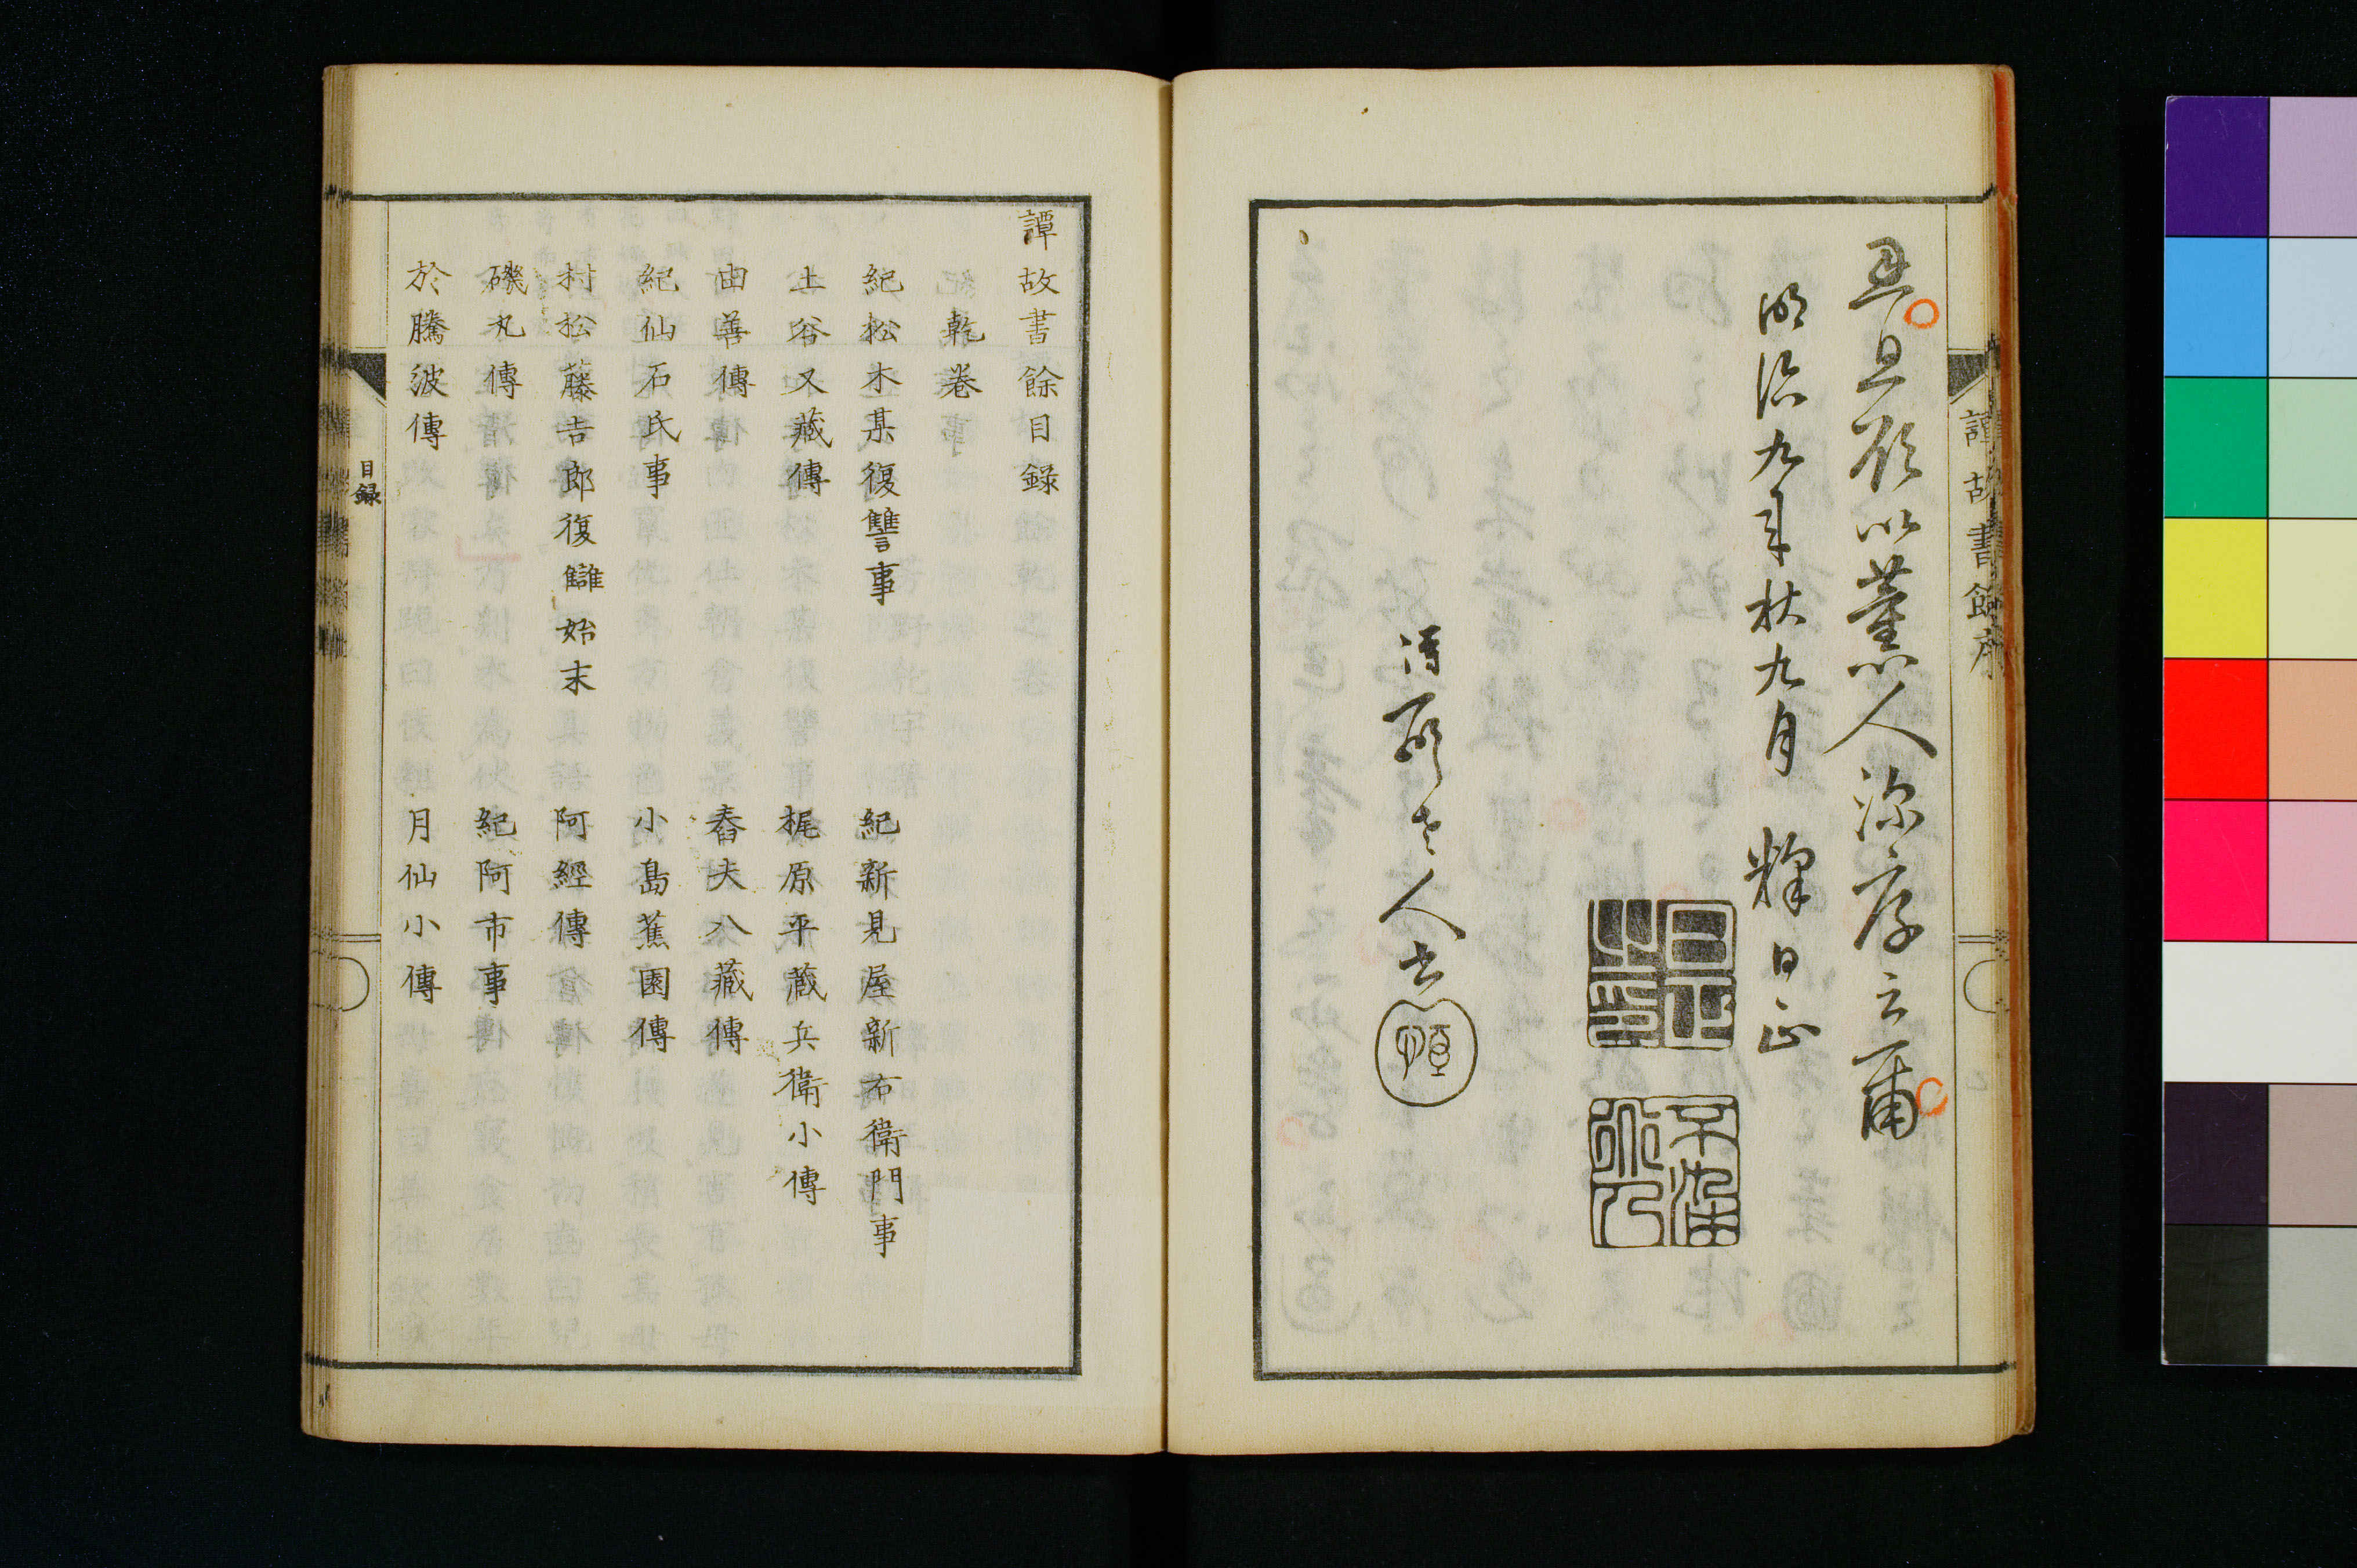 譚故書餘序
且以薫人
明治九年秋九月 釋日正
日正之印
人書
譚故書餘目錄
乾卷
紀松木某復讐事 紀新見屋新右衛門事
土谷又藏傳 梶原平藏兵衛小傳
由善傳 舂夫八藏傳
紀仙石氏事 小島蕉園傳
村松藤吉郎復讎始末 阿經傳
磯丸傳 紀阿市事
於騰波傳 月仙小傳
目錄